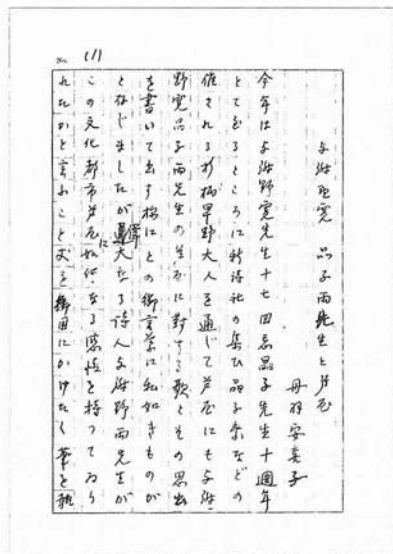 No. (1)
与謝野寛 晶子両先生と芦屋
丹羽安喜子
今年は与謝野寛先生十七回忌晶子先生十週年
とて至るところに新詩社の集ひ晶子祭などの
催される折柄早野大人を通じて芦屋にも与謝
野寛晶子両先生の芦屋に対する歌とその思出
を書いて出す様にとの御言葉に私如きものが
と存じましたが偉大なる詩人与謝野両先生が
この文化都市芦屋に如何なる感情を持つてゐら
れたかと言ふこと丈を御目にかけたく筆を執